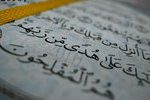 مَا أُنزِلَ مِن قَبْلِكَ
عَلَىٰ هُدًى مِّن رَّبِّهِمْ
هُمُ الْمُفْلِحُونَ